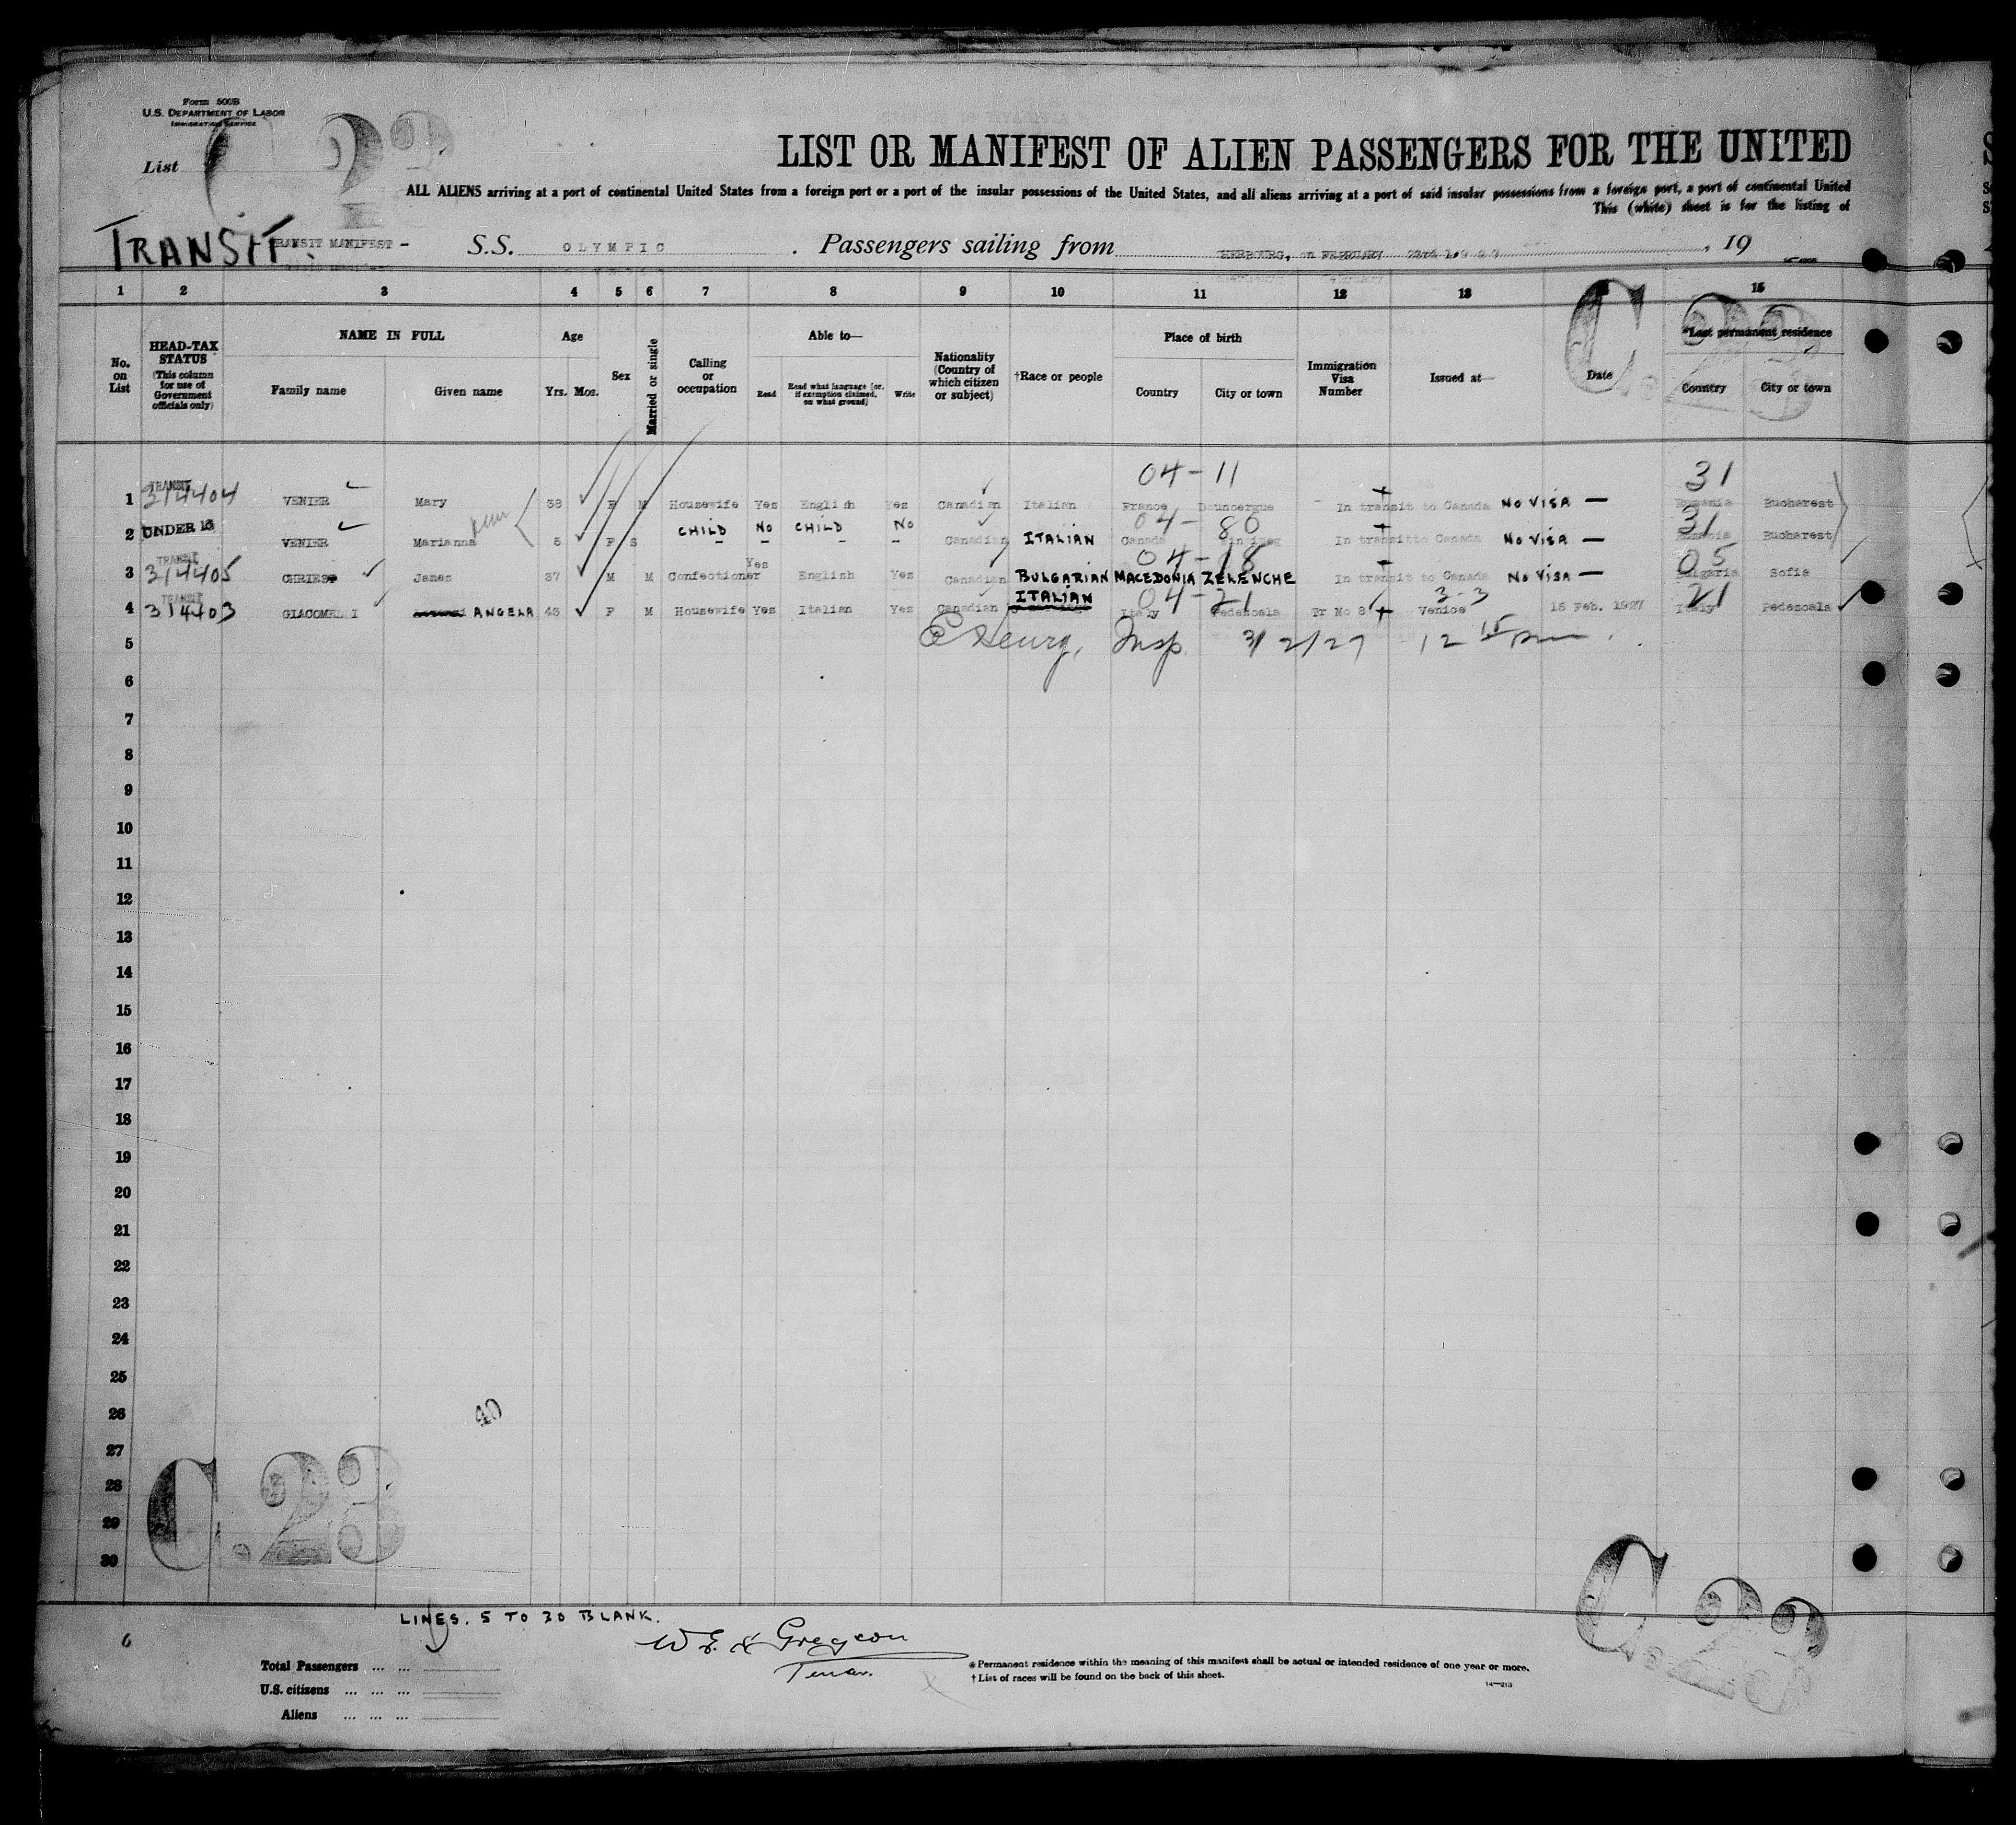 Form 500B
U.S. DEPARTMENT OF LABOR
IMMIGRATION SERVICE
List
LIST OR MANIFEST OF ALIEN PASSENGERS FOR THE UNITED
ALL ALIENS arriving at a port of continental United States from a foreign port or a port of the insular possessions of the United States, and all aliens arriving at a port of said insular possessions from a foreign port, a port of continental United
This (white) sheet is for the listing of
TRANSIT
TRANSIT MANIFEST - S.S. OLYMPIC . Passengers sailing from HERBOURG, on FEBRUARY 23rd 1927 , 19
1 2 3 4 5 6 7 8 9 10 11 12 13 15
No. on List
HEAD-TAX STATUS (This column for use of Government officials only)
NAME IN FULL
Family name Given name
Age
Yrs. Mos.
Sex
Married or single
Calling or occupation
Able to—
Read Read what language [or, if exemption claimed, on what ground] Write
Nationality (Country of which citizen or subject)
†Race or people
Place of birth
Country City or town
Immigration Visa Number
Issued at—
Date
*Last permanent residence
Country City or town
C 23
04-11 31
1 TRANSIT 314404 VENIER Mary 38 F M Housewife Yes English Yes Canadian Italian France In transit to Canada NO VISA — Bucharest
04-80 31
2 UNDER 16 VENIER Marianna 5 F S CHILD NO CHILD NO Canadian ITALIAN Canada In transit to Canada NO VISA — Bucharest
04-18 05
3 TRANSIT 314405 James 37 M M Confectioner Yes English Yes Canadian BULGARIAN MACEDONIA ZELENCHE In transit to Canada NO VISA — Bulgaria Sofia
04-21 3-3 21
4 TRANSIT 314403 GIACOMELLI ANGELA 43 F M Housewife Yes Italian Yes Canadian ITALIAN Italy Pedescala Tr No 8 Venice 15 Feb. 1927 Italy Pedescala
5 Insp. 3/2/27 12 15 pm
6
7
8
9
10
11
12
13
14
15
16
17
18
19
20
21
22
23
24
25
26
40
27
28
29
30
C.23
C 23
LINES. 5 TO 30 BLANK.
6
Total Passengers ... ...
U.S. citizens ... ... ...
Aliens ... ... ...
*Permanent residence within the meaning of this manifest shall be actual or intended residence of one year or more.
†List of races will be found on the back of this sheet.
14—213